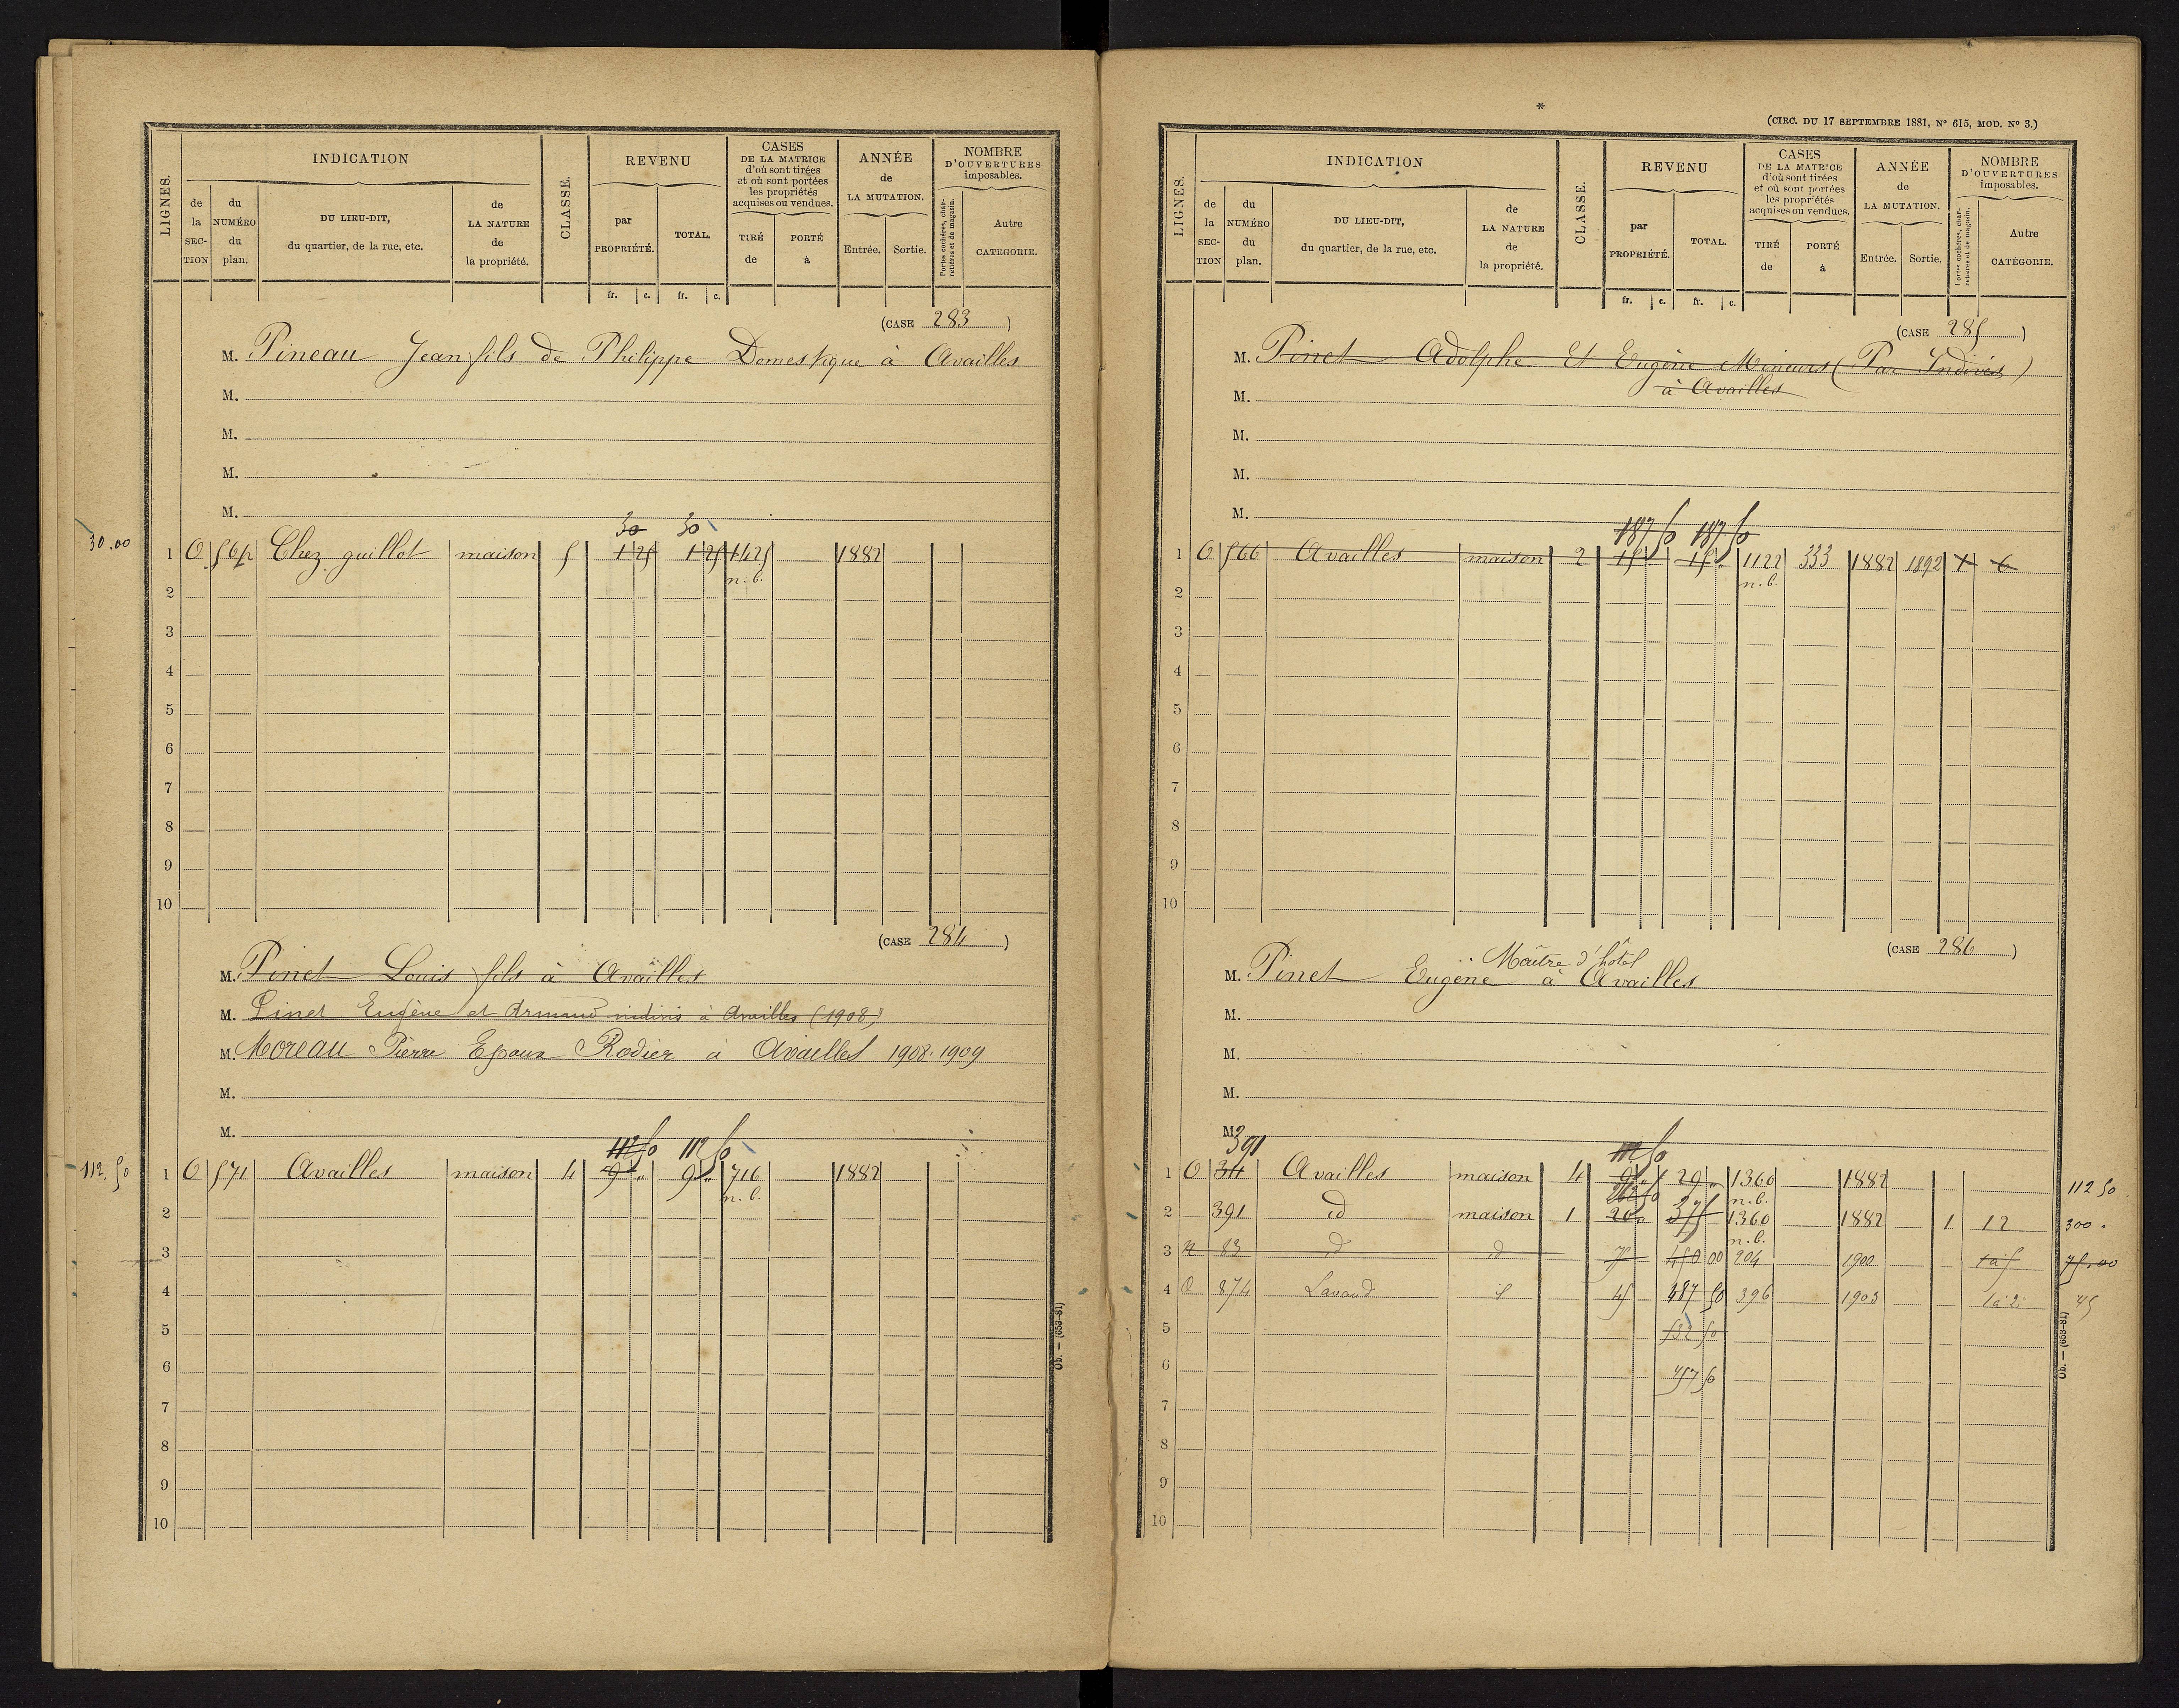 LIGNES.
INDICATION
de la SECTION
du NUMÉRO du plan.
DU LIEU-DIT, du quartier, de la rue, etc.
de LA NATURE de la propriété.
CLASSE.
REVENU
par PROPRIÉTÉ.
TOTAL.
fr. c. fr. c.
CASES DE LA MATRICE d'où sont tirées et où sont portées les propriétés acquises ou vendues.
TIRÉ de
PORTÉ à
ANNÉE de LA MUTATION.
Entrée. Sortie.
NOMBRE D'OUVERTURES imposables.
Portes cochères, charretières et de magasin.
Autre CATÉGORIE.
(CASE 283)
M. Pineau Jean fils de Philippe Domestique à Availles
M.
M.
M.
M.
30 30
30.00
1 O 564 Chez guillot maison 5 1 25 1 25 1425 1882
n. b.
2
3
4
5
6
7
8
9
10
(CASE 284)
M. Pinet Louis fils à Availles
M. Pinet Eugène et Armand indivis à Availles (1908)
M. Moreau Pierre Epoux Rodier à Availles 1908.1909
M.
M.
112 50 112 50
112.50
1 O 571 Availles maison 4 9 " 9 " 716 1882
n. b.
2
3
4
5
6
7
8
9
10
Ob. — (659-81)
*
(CIRC. DU 17 SEPTEMBRE 1881, N° 615, MOD. N° 3.)
LIGNES.
INDICATION
de la SECTION
du NUMÉRO du plan.
DU LIEU-DIT, du quartier, de la rue, etc.
de LA NATURE de la propriété.
CLASSE.
REVENU
par PROPRIÉTÉ.
TOTAL.
fr. c. fr. c.
CASES DE LA MATRICE d'où sont tirées et où sont portées les propriétés acquises ou vendues.
TIRÉ de
PORTÉ à
ANNÉE de LA MUTATION.
Entrée. Sortie.
NOMBRE D'OUVERTURES imposables.
Portes cochères, charretières et de magasin.
Autre CATÉGORIE.
(CASE 285)
M. Pinet Adolphe Et Eugène Mineurs (Par Indivis)
à Availles
M.
M.
M.
M.
187 50 187 50
1 O 566 Availles maison 2 15 " 15 " 1122 333 1882 1892 1 6
n. b.
2
3
4
5
6
7
8
9
10
(CASE 286)
Maître d'hôtel
M. Pinet Eugène à Availles
M.
M.
M.
M.
391
112 50
1 O 34 Availles maison 4 9 " 29 " 1360 1882 112 50
262 50 n. b.
2 391 id maison 1 20 " 375 1360 1882 1 12 300 "
n. b.
3 n 83 d id 75 450 00 204 1900 1 à 5 75.00
4 O 874 Lavaud id 45 487 50 396 1903 1 à 2 45
5 532 50
6 457 50
7
8
9
10
Ob. — (659-81)